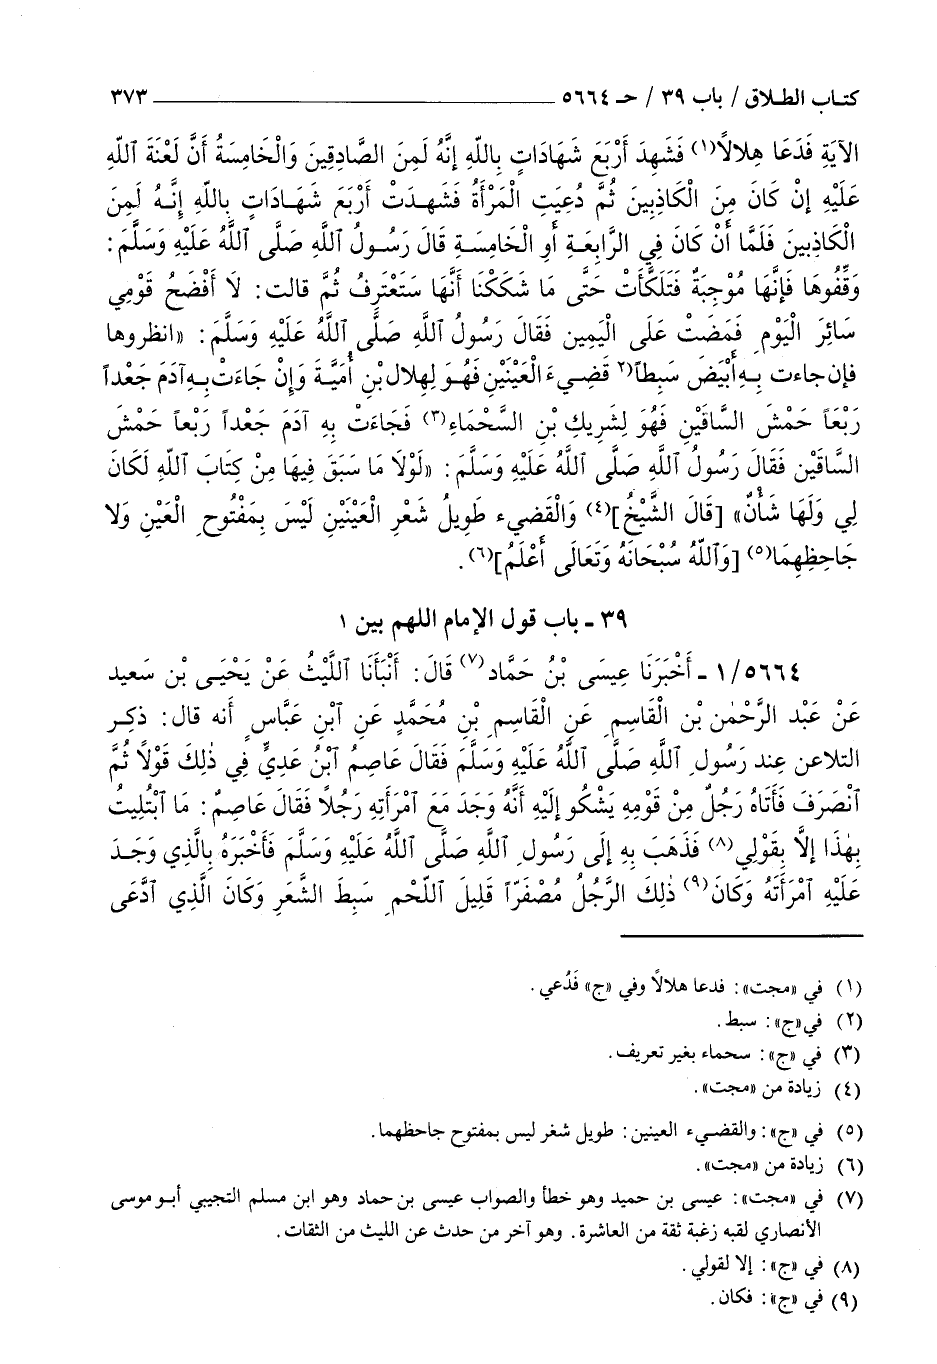 كتاب الطلاق / باب ٣٩ / حـ ٥٦٦٤ ٣٧٣
الآيَةِ فَدَعَا هِلالاً(١) فَشَهِدَ أَرْبَعَ شَهَادَاتٍ بِاللّهِ إِنَّهُ لَمِنَ الصَّادِقِينَ وَالْخَامِسَةُ أَنَّ لَعْنَةَ اللّهِ
عَلَيْهِ إِنْ كَانَ مِنَ الْكَاذِبِينَ ثُمَّ دُعِيَتِ الْمَرْأَةُ فَشَهِدَتْ أَرْبَعَ شَهَادَاتٍ بِاللّهِ إِنَّهُ لَمِنَ
الْكَاذِبِينَ فَلَمَّا أَنْ كَانَ فِي الرَّابِعَةِ أَوِ الْخَامِسَةِ قَالَ رَسُولُ اللّهِ صَلَّى اللَّهُ عَلَيْهِ وَسَلَّمَ:
وَقِّفُوهَا فَإِنَّهَا مُوْجِبَةٌ فَتَلَكَّأَتْ حَتَّى مَا شَكَكْنَا أَنَّهَا سَتَعْتَرِفُ ثُمَّ قالت: لَا أَفْضَحُ قَوْمِي
سَائِرَ الْيَوْمِ فَمَضَتْ عَلَى الْيَمِينِ فَقَالَ رَسُولُ اللّهِ صَلَّى اللَّهُ عَلَيْهِ وَسَلَّمَ: «انظروها
فإن جاءت بِهِ أَبْيَضَ سَبِطاً(٢ قَضِيءَ الْعَيْنَيْنِ فَهُوَ لِهِلال بْنِ أُمَيَّةَ وَإِنْ جَاءَتْ بِهِ آدَمَ جَعْداً
رَبْعَاً حَمْشَ السَّاقَيْنِ فَهُوَ لِشَرِيكِ بْنِ السَّحْمَاءِ(٣) فَجَاءَتْ بِهِ آدَمَ جَعْداً رَبْعاً حَمْشَ
السَّاقَيْنِ فَقَالَ رَسُولُ اللّهِ صَلَّى اللَّهُ عَلَيْهِ وَسَلَّمَ: «لَوْلَا مَا سَبَقَ فِيهَا مِنْ كِتَابَ اللّهِ لَكَانَ
لِي وَلَهَا شَأْنٌ» [قَالَ الشَّيْخُ](٤) وَالْقَضِيء طَوِيلُ شَعْرِ الْعَيْنَيْنِ لَيْسَ بِمَفْتُوحِ الْعَيْنِ وَلَا
جَاحِظِهِمَا(٥) [وَاللّهُ سُبْحَانَهُ وَتَعَالَى أَعْلَمُ](٦).
٣٩ ـ باب قول الإمام اللهم بين ١
١/٥٦٦٤ ـ أَخْبَرَنَا عِيسَى بْنُ حَمَّاد(٧) قَالَ: أَنْبَأَنَا اللَّيْثُ عَنْ يَحْيَى بْنِ سَعِيد
عَنْ عَبْد الرَّحْمٰن بْنِ الْقَاسِمِ عَنِ الْقَاسِمِ بْنِ مُحَمَّدٍ عَنِ ابْنِ عَبَّاسٍ أَنه قال: ذكِر
التلاعن عِند رَسُولِ اللّهِ صَلَّى اللَّهُ عَلَيْهِ وَسَلَّمَ فَقَالَ عَاصِمُ ابْنُ عَدِيٍّ فِي ذٰلِكَ قَوْلاً ثُمَّ
انْصَرَفَ فَأَتَاهُ رَجُلٌ مِنْ قَوْمِهِ يَشْكُو إِلَيْهِ أَنَّهُ وَجَدَ مَعَ امْرَأَتِهِ رَجُلاً فَقَالَ عَاصِمٌ: مَا ابْتُلِيتُ
بِهٰذَا إِلَّا بِقَوْلِي(٨) فَذَهَبَ بِهِ إِلَى رَسُولِ اللّهِ صَلَّى اللَّهُ عَلَيْهِ وَسَلَّمَ فَأَخْبَرَهُ بِالَّذِي وَجَدَ
عَلَيْهِ امْرَأَتَهُ وَكَانَ(٩) ذٰلِكَ الرَّجُلُ مُصْفَرّاً قَلِيلَ اللَّحْمِ سَبِطَ الشَّعَرِ وَكَانَ الَّذِي ادَّعَى
(١) في «مجت»: فدعا هلالاً وفي «ج» فَدُعي.
(٢) في «ج»: سبط.
(٣) في «ج»: سحماء بغير تعريف.
(٤) زيادة من «مجت».
(٥) في «ج»: والقضيء العينين: طويل شغر ليس بمفتوح جاحظهما.
(٦) زيادة من «مجت».
(٧) في «مجت»: عيسى بن حميد وهو خطأ والصواب عيسى بن حماد وهو ابن مسلم التجيبي أبو موسى
الأنصاري لقبه زغبة ثقة من العاشرة. وهو آخر من حدث عن الليث من الثقات.
(٨) في «ج»: إلا لقولي.
(٩) في «ج»: فكان.